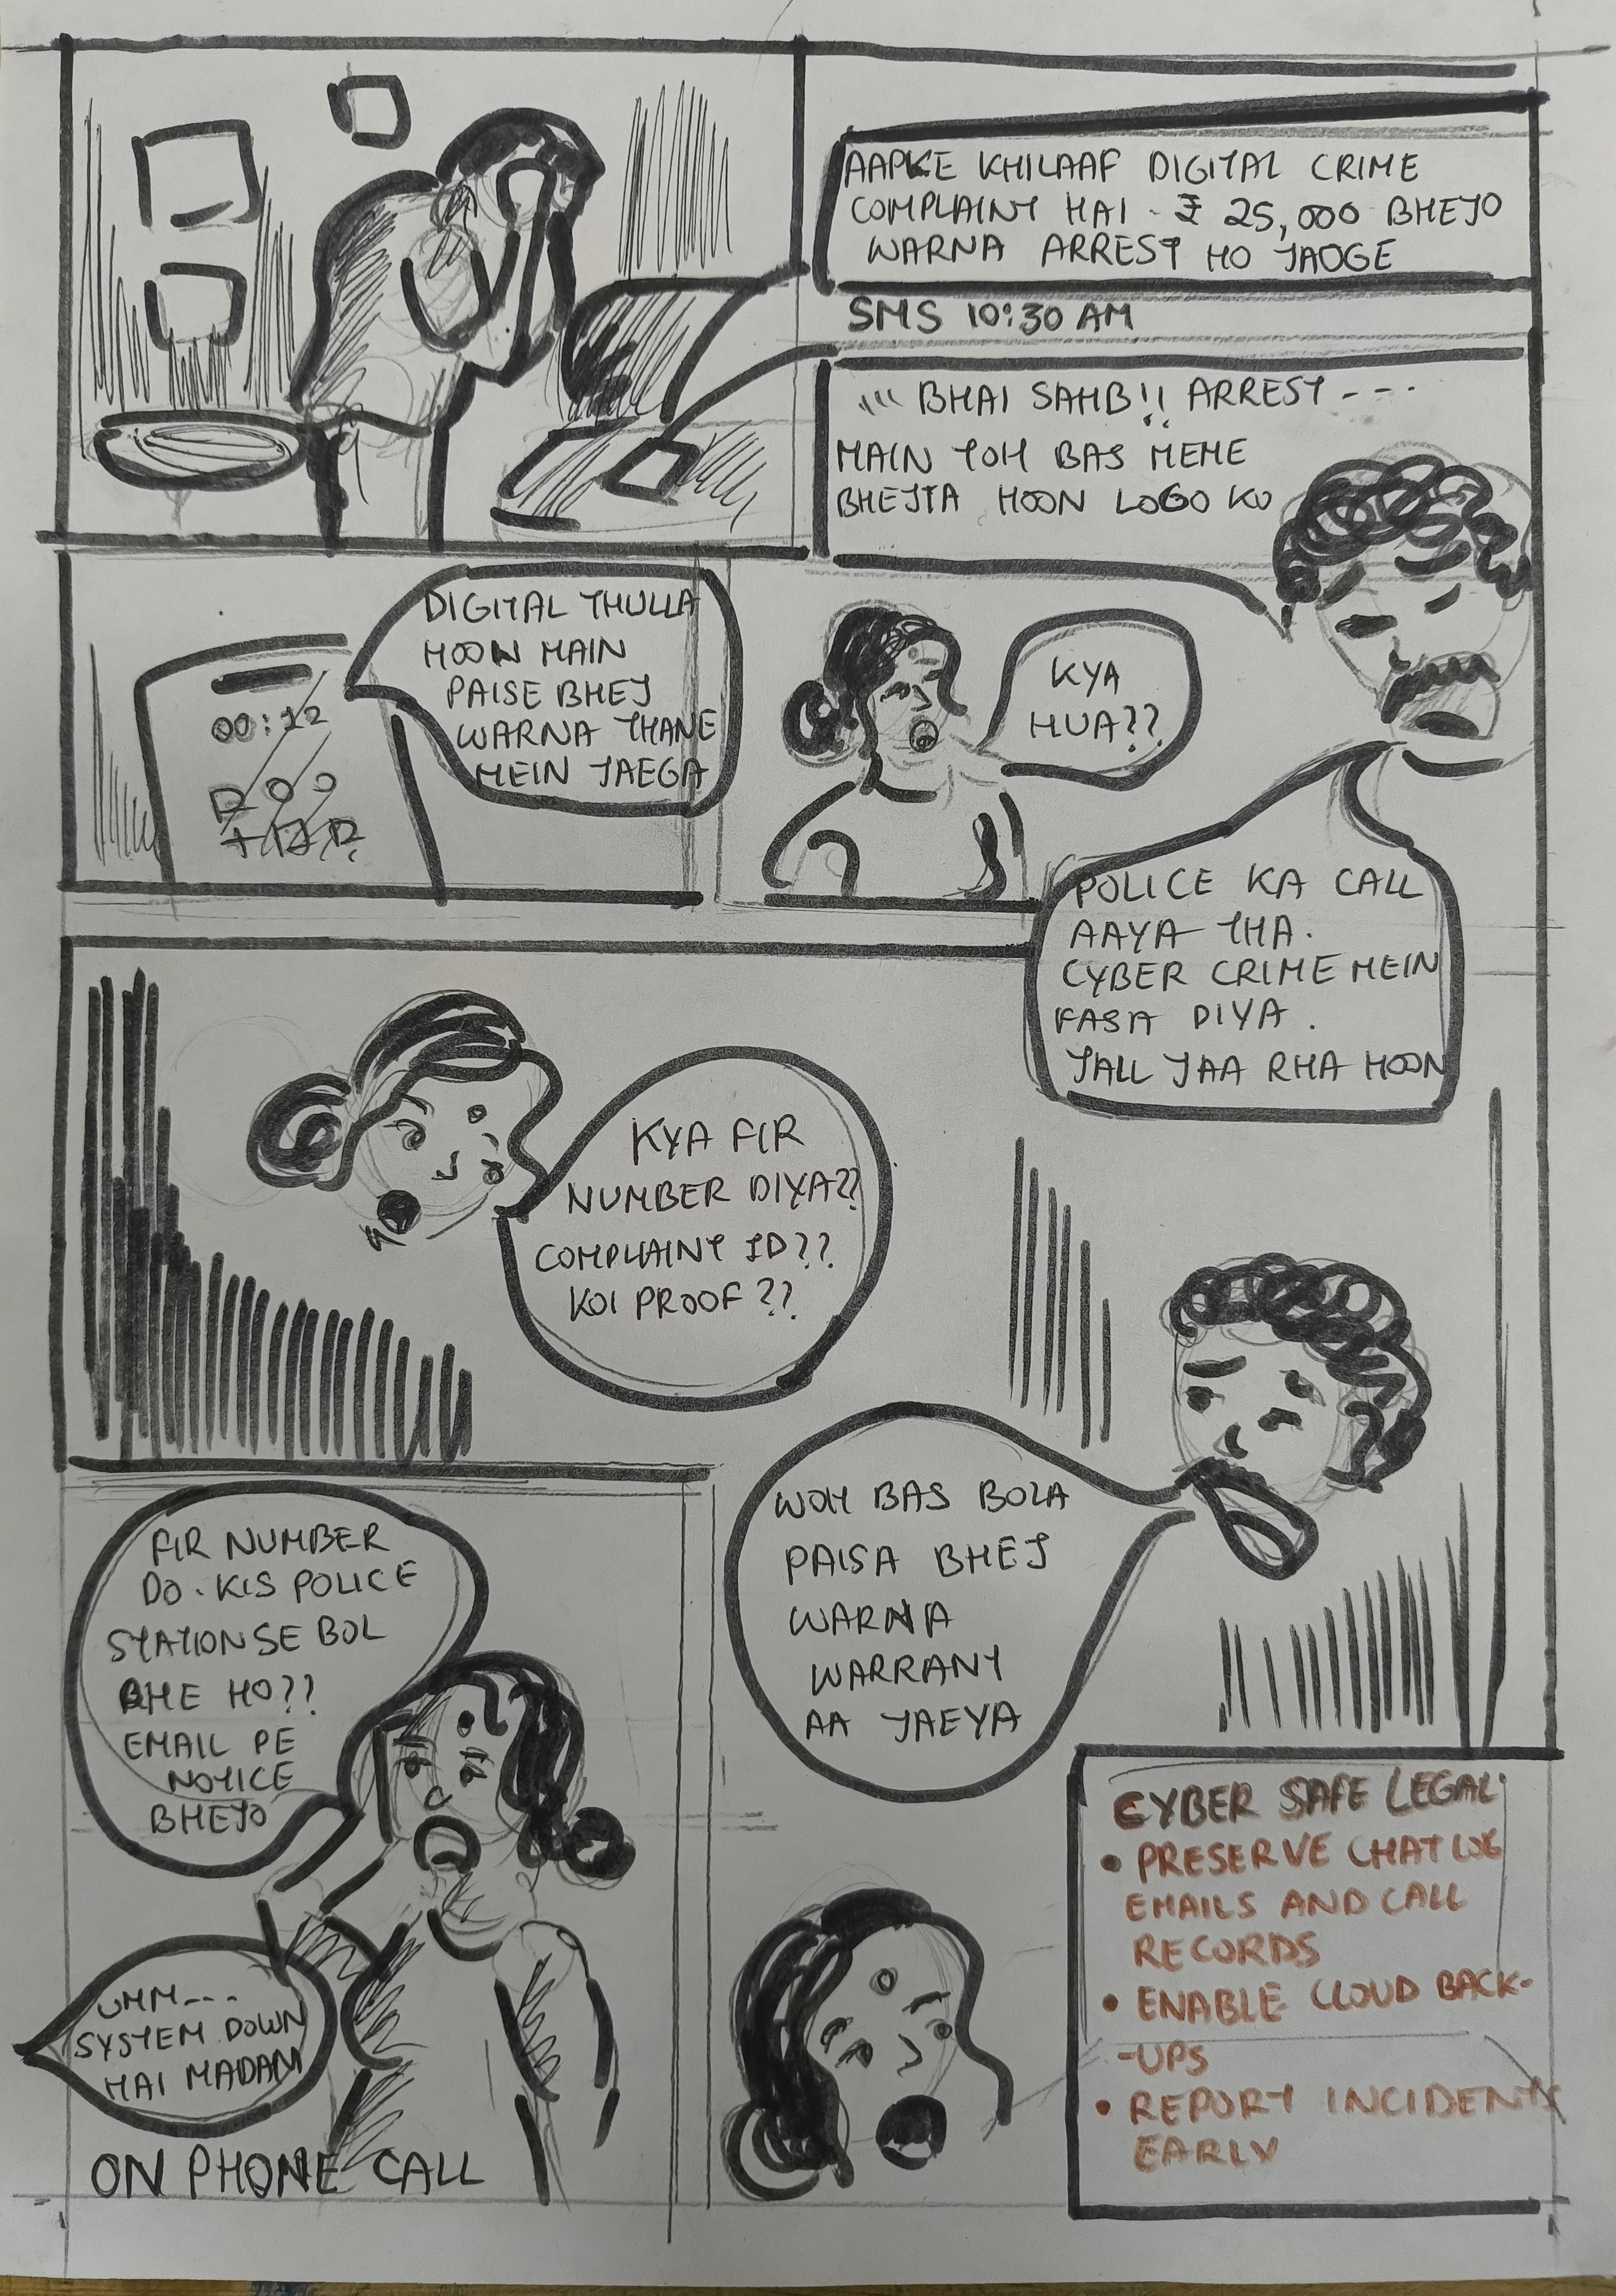 AAPKE KHILAAF DIGITAL CRIME
COMPLAINT HAI - ₹ 25,000 BHEJO
WARNA ARREST HO JAOGE
SMS 10:30 AM
BHAI SAHB!! ARREST ---
MAIN TOH BAS MEME
BHEJTA HOON LOGO KO
DIGITAL THULLA
HOON MAIN
PAISE BHEJ
WARNA THANE
MEIN JAEGA
00:12
KYA
HUA??
POLICE KA CALL
AAYA THA.
CYBER CRIME MEIN
FASA DIYA.
JALL JAA RHA HOON
KYA FIR
NUMBER DIYA??
COMPLAINT ID??
KOI PROOF??
WOH BAS BOLA
PAISA BHEJ
WARNA
WARRANT
AA JAEYA
FIR NUMBER
DO. KIS POLICE
STATION SE BOL
RHE HO??
EMAIL PE
NOTICE
BHEJO
UMM---
SYSTEM DOWN
HAI MADAM
ON PHONE CALL
CYBER SAFE LEGAL:
• PRESERVE CHAT LOG
EMAILS AND CALL
RECORDS
• ENABLE CLOUD BACK-
-UPS
• REPORT INCIDENTS
EARLY